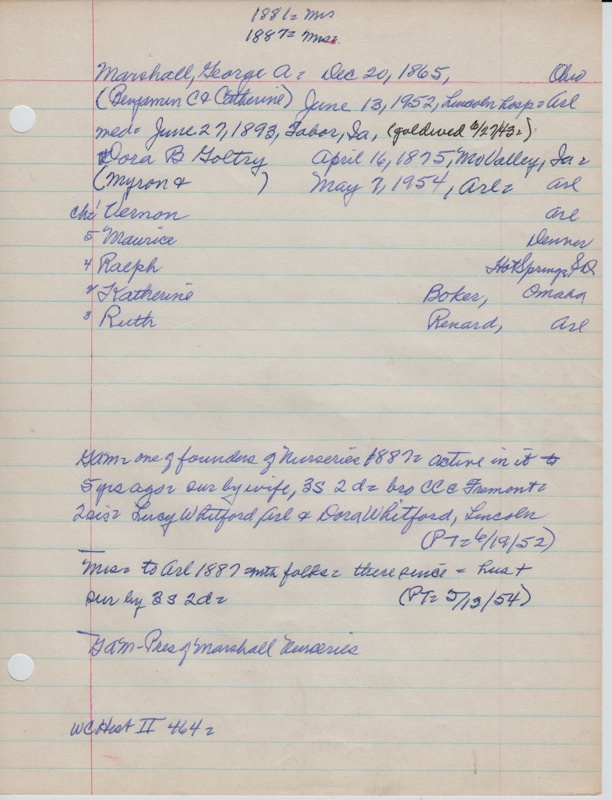 1881 = Mrs
1887 = Mrs =
Marshall, George A = Dec 20, 1865, Ohio
(Benjamin C & Catherine) June 13, 1952, Lincoln hosp = Arl
med = June 27, 1893, Tabor, Ia, (gold wed 6/27/43 = )
Dora B Goltry April 16, 1875, MoValley, Ia =
(Myron & ) May 7, 1954, Arl = Arl
ch: 1 Vernon Arl
5 Maurice Denver
4 Ralph Hot Springs, SD
2 Katherine Boker, Omaha
3 Ruth Renard, Arl
GAM = one of founders of Nurseries 1887 = active in it to
5 yrs ago = sur by wife, 3S 2d = bro CCC Fremont =
2 sis = Lucy Whitford, Arl & Dora Whitford, Lincoln
(PT = 6/19/52)
Mrs = to Arl 1887 = with folks = there since =
sur by 3S 2d = (PT = 5/13/54)
GAM - Pres of Marshall Nurseries
WC Hist II 464 =